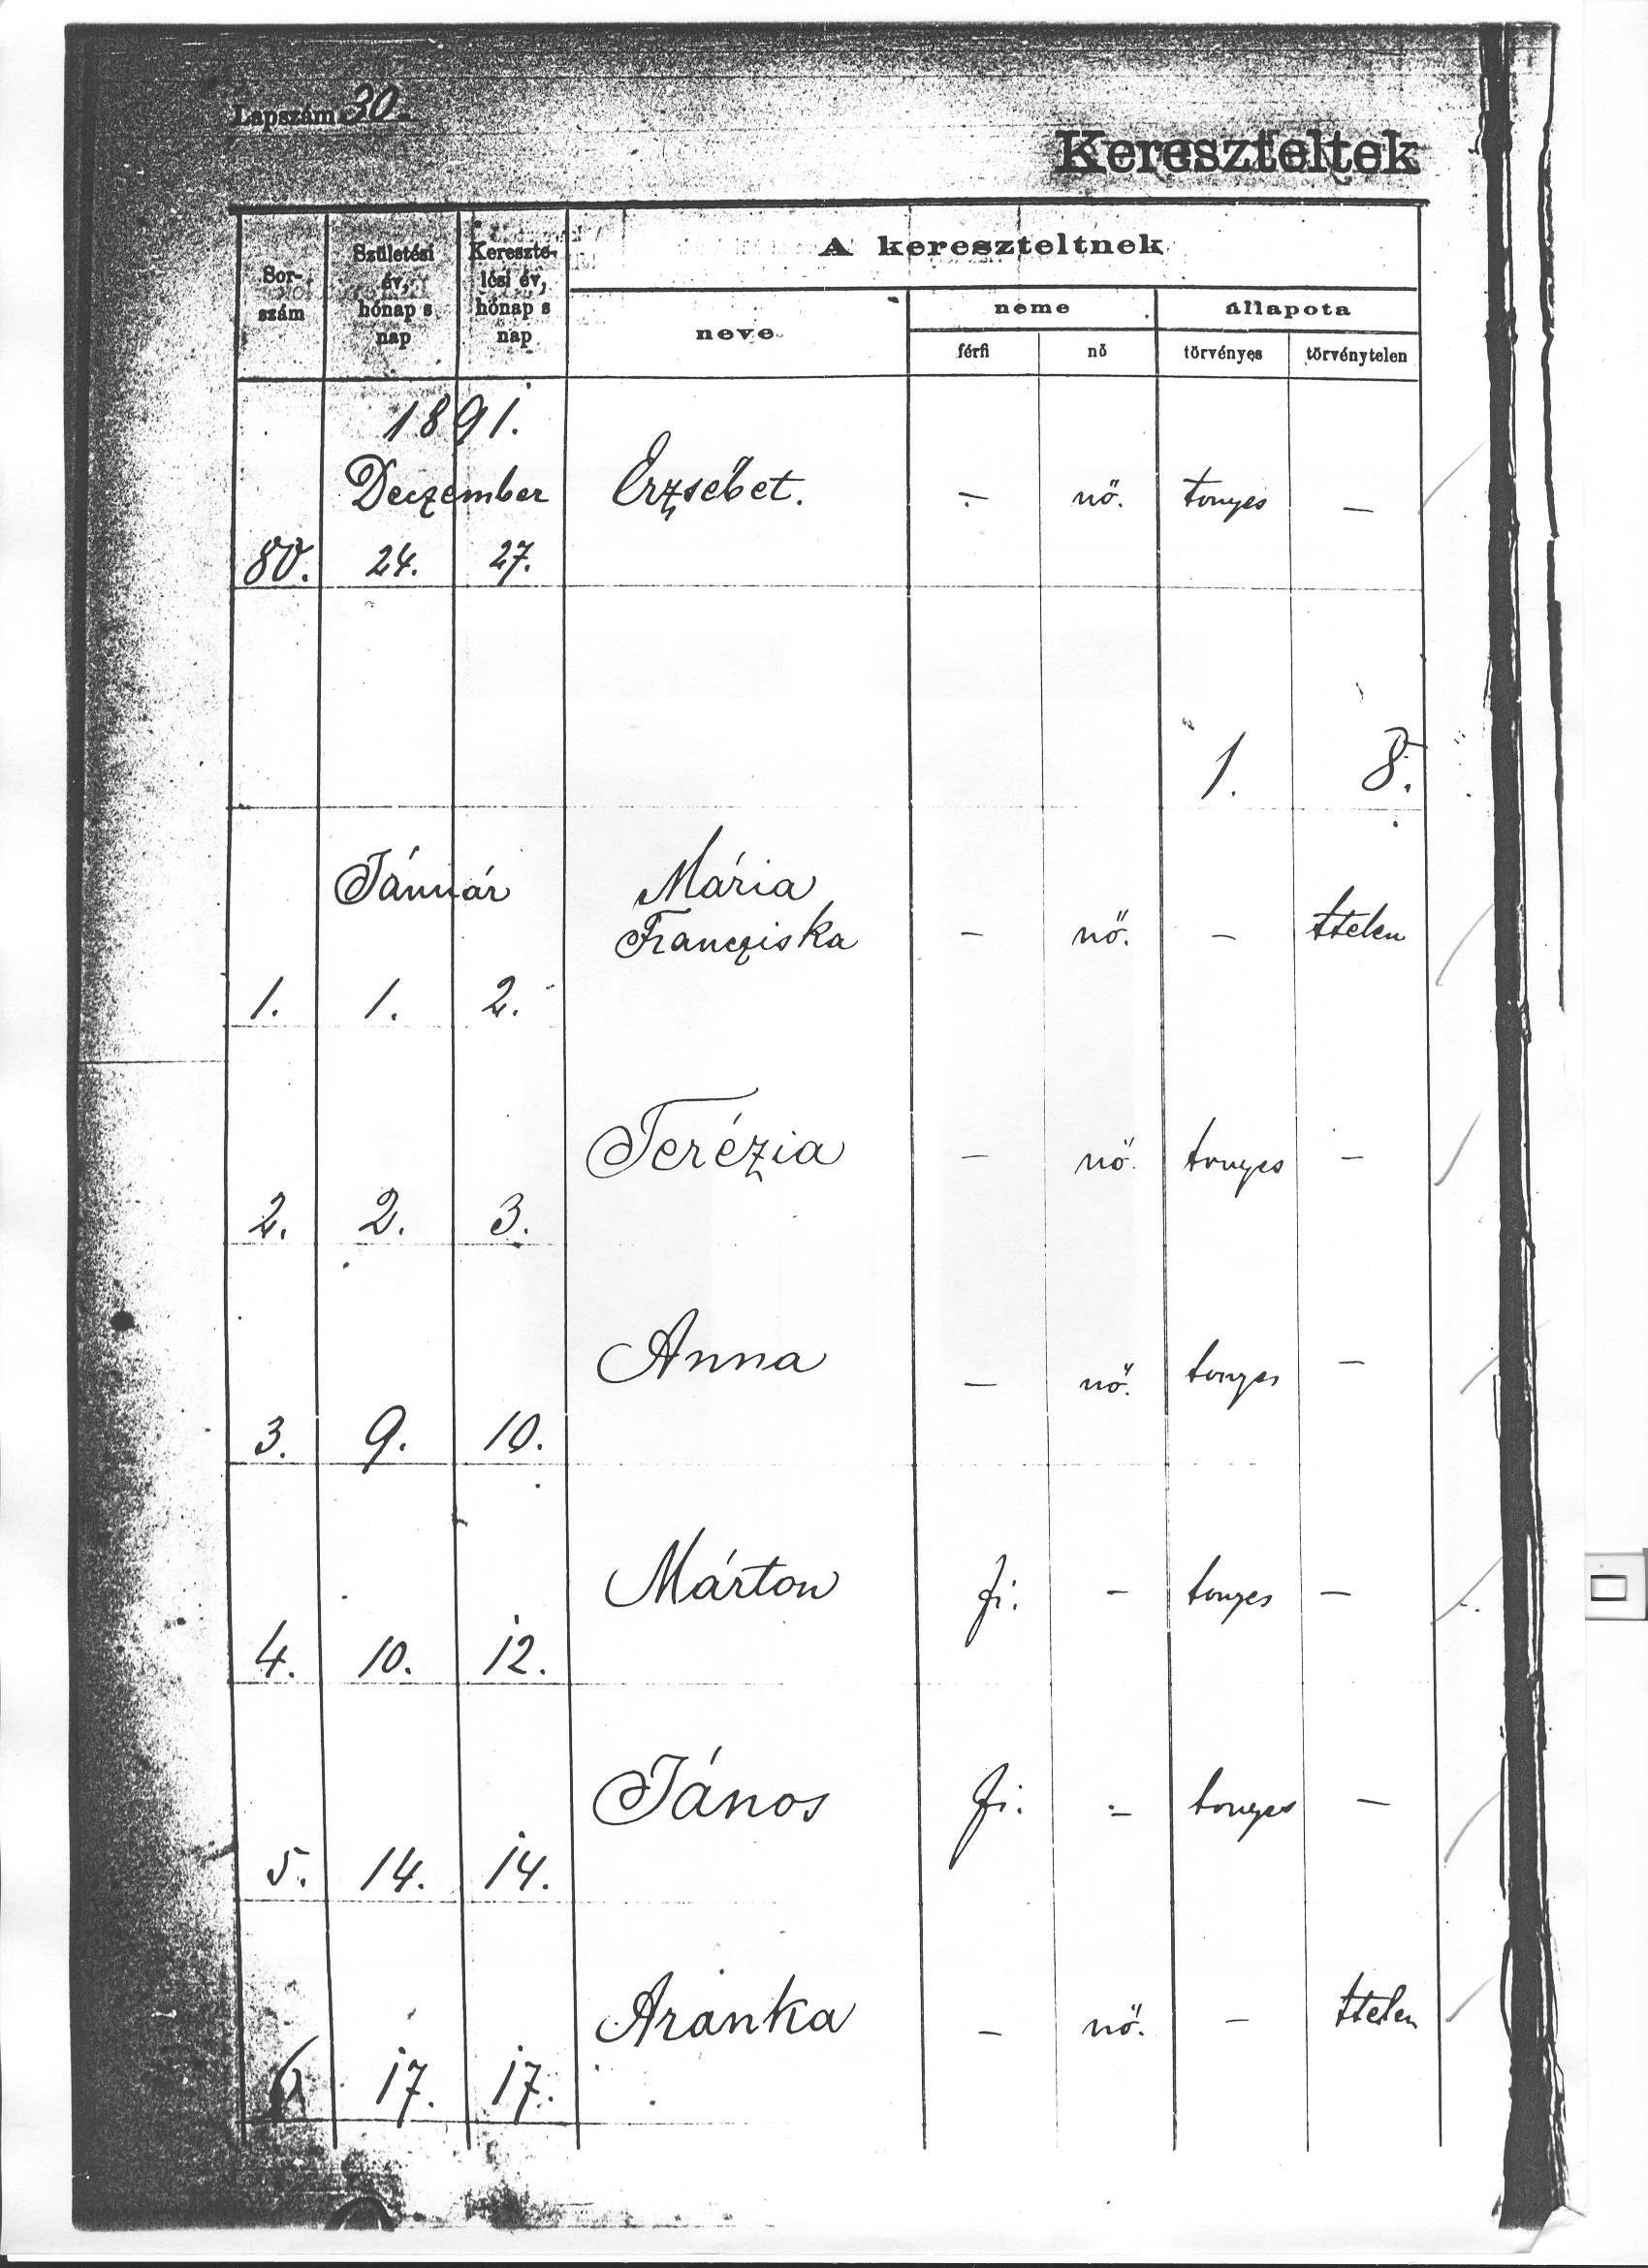 Lapszám 30.
Kereszteltek
Sor-
szám
Születési
év,
hónap s
nap
Kereszte-
lési év,
hónap s
nap
A kereszteltnek
neve
neme
állapota
férfi
nő
törvényes
törvénytelen
1891.
Deczember
80. 24. 27. Erzsébet. – nő. tvnyes –
1. 8.
Jánuár
Mária
Francziska
1. 1. 2. – nő. – ttelen
2. 2. 3. Terézia – nő. tvnyes –
3. 9. 10. Anna – nő. tvnyes –
4. 10. 12. Márton fi. – tvnyes –
5. 14. 14. János fi. – tvnyes –
6 17. 17. Aranka – nő. – ttelen